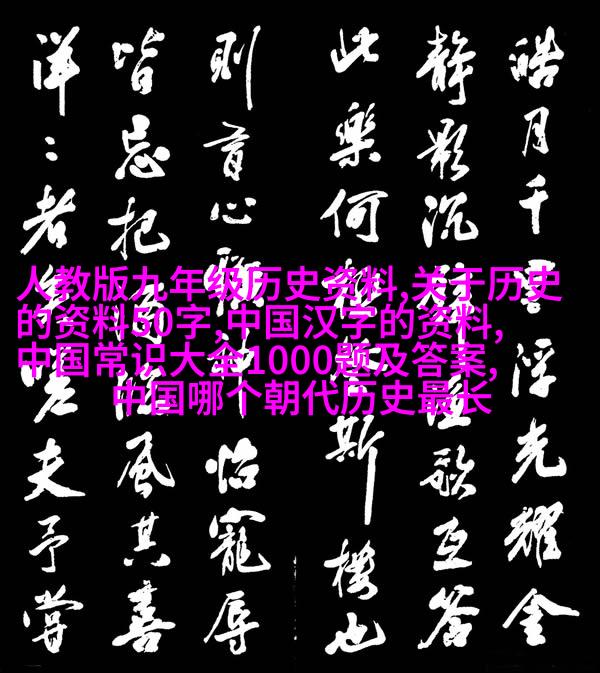 皓月千浮光耀金
静影沉歌互答
此樂何斯樓也
則有心怡寵辱
皆忘把風其喜
洋:者夫予嘗
人教版九年级历史资料,关于历史
的资料50字,中国汉字的资料,
中国常识大全1000题及答案,
中国哪个朝代历史最长